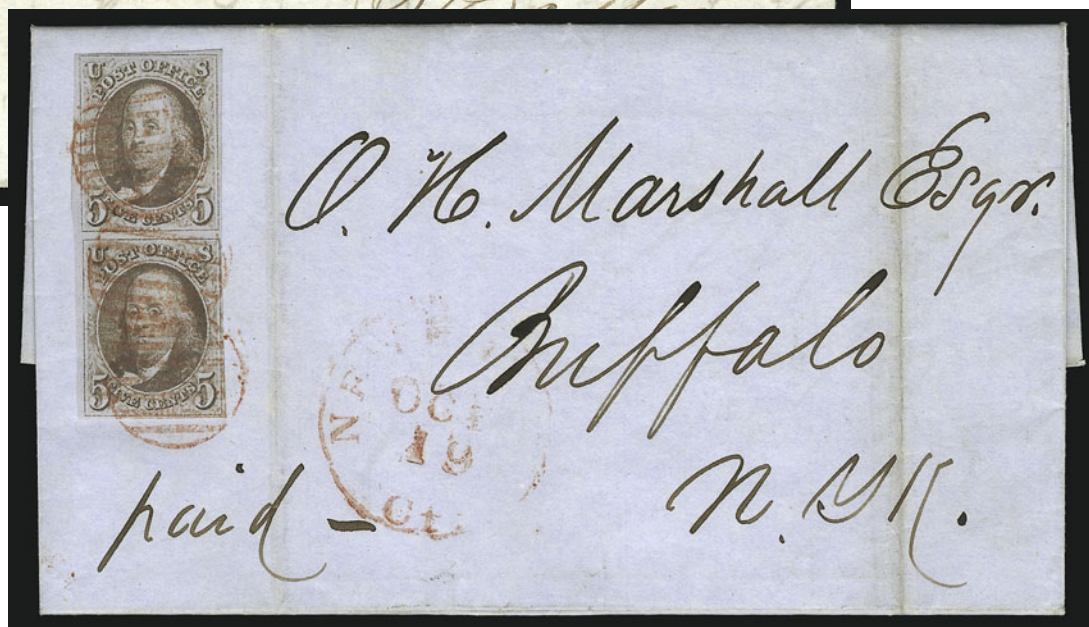 U S
POST OFFICE
5 FIVE CENTS 5
U S
POST OFFICE
5 FIVE CENTS 5
O. H. Marshall Esqr.
Buffalo
N. YK.
paid –
OCT
19
Ct.